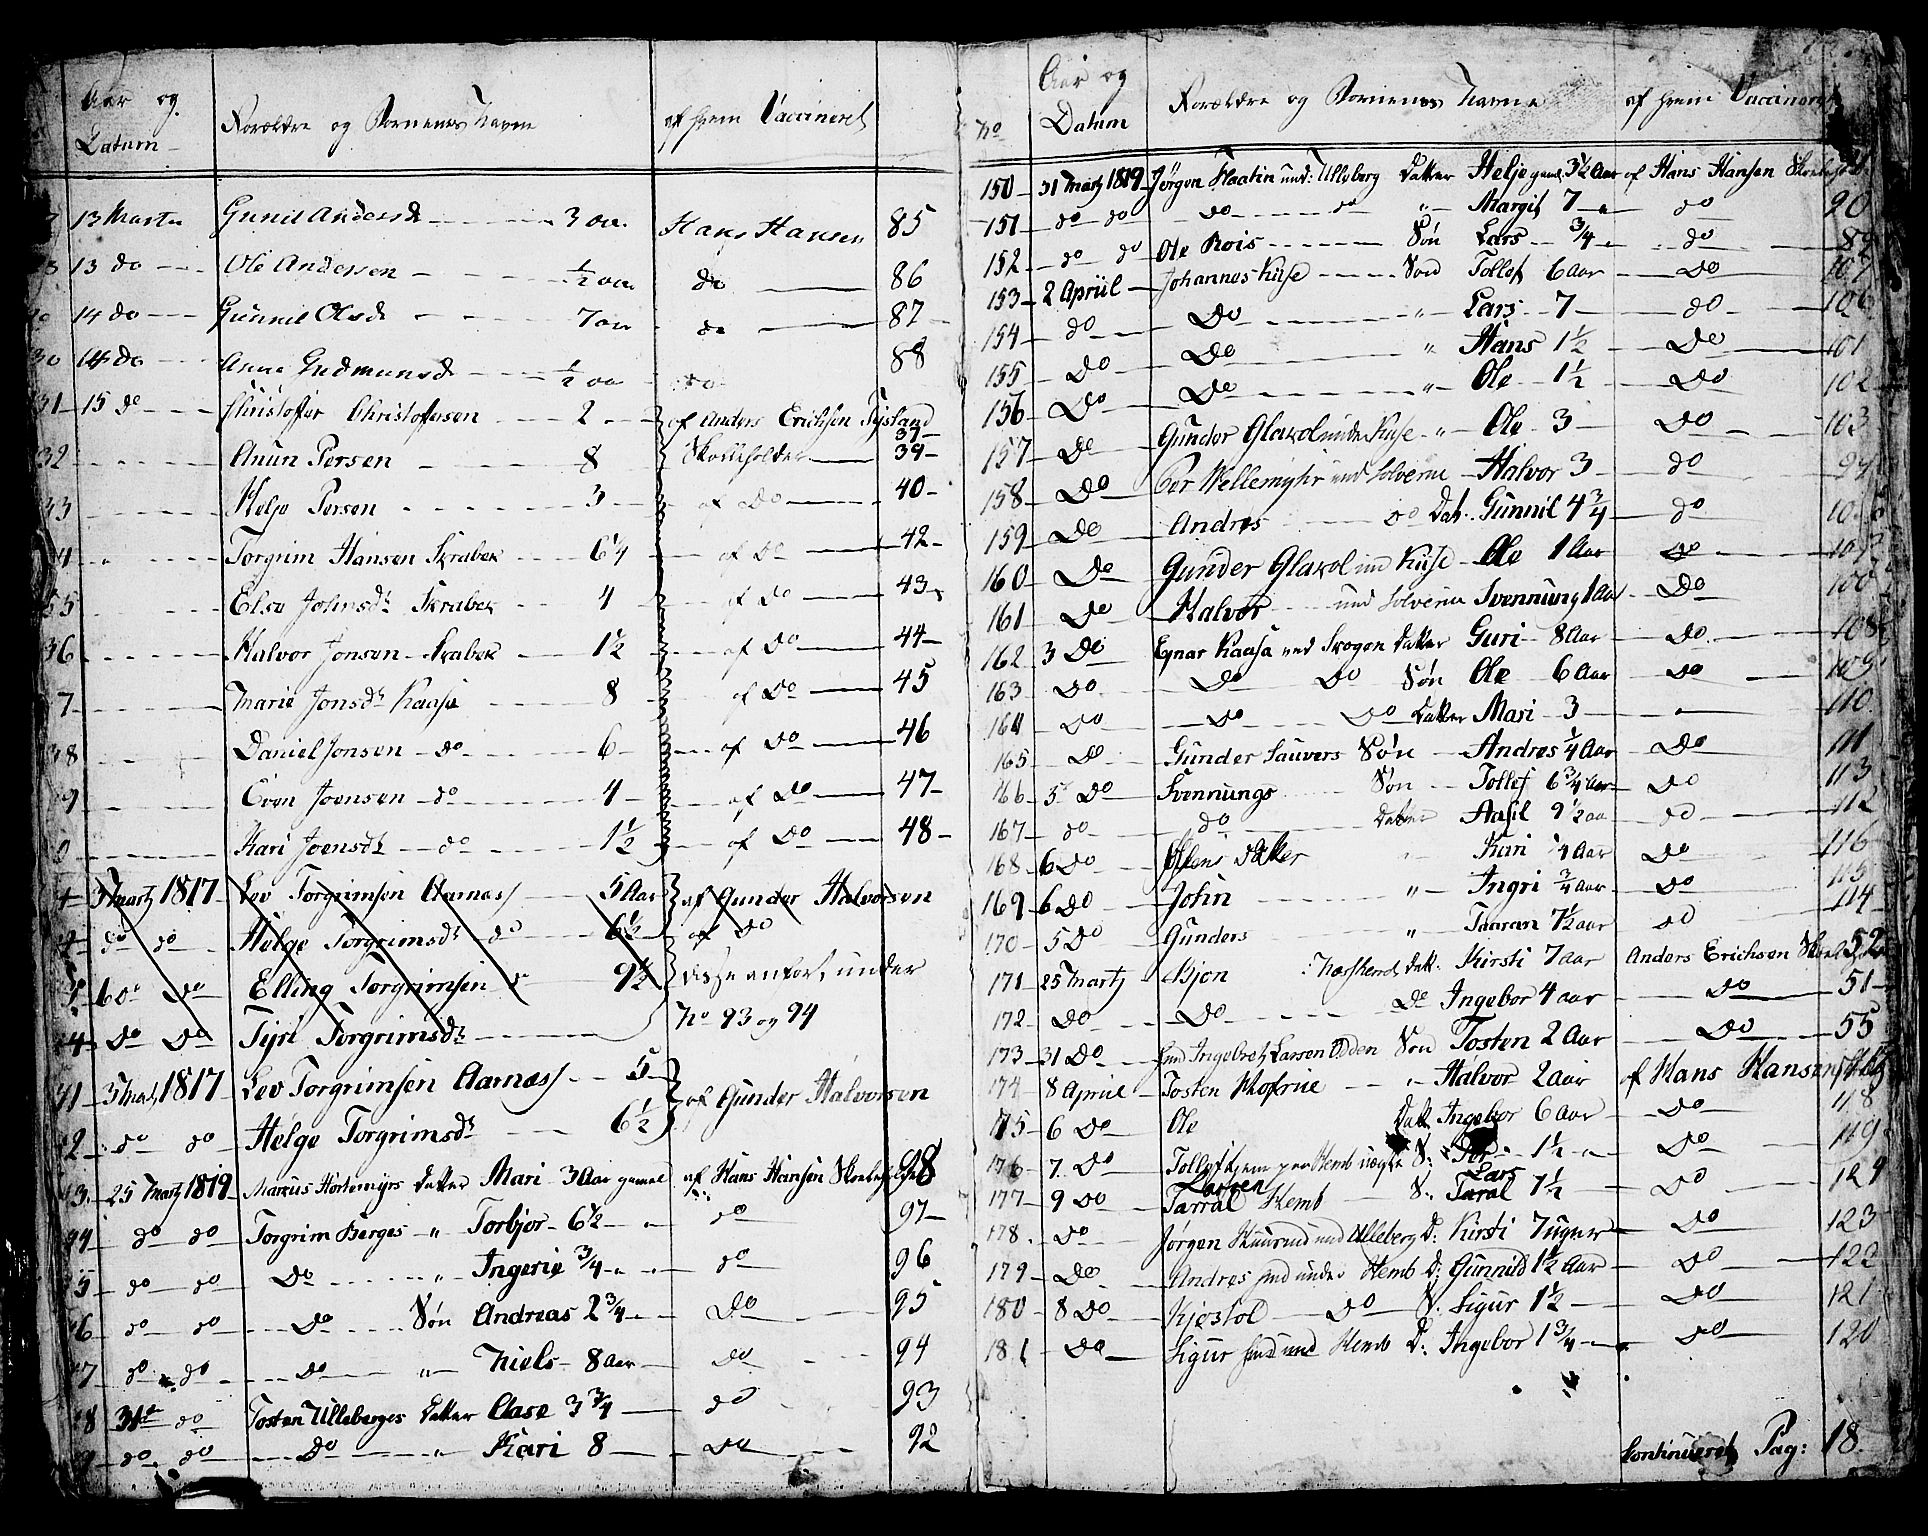 Aar og Datum Forældre og Børnenes Navn af hvem Vaccineret
13 Marts Gunil Andersd 3 aar Hans Hansen 85
13 do Ole Andersen ½ aar do 86
14 do Gunnil Olsd 7 aar do 87
14 do Anne Gudmunsd ½ aar do 88
31 15 do Christoffer Christofersen 2 af Anders Erichsen 37
32 Anun Persen 8 Skolleholder 39
33 Helje Persen 3 af Do 40
Torgrim Hansen Skrabek 6¼ af Do 42
35 Else Johnsdt Skrabek 4 af Do 43
36 Halvor Jonsen Skrabek 1½ af Do 44
7 Marie Jonsdt Kaasa 8 af Do 45
38 Daniel Jonsen do 6 af Do 46
9 Even Joensen do 4 af Do 47
0 Kari Joensdt do 1½ af Do 48
3 Martz 1817 Lev Torgrimsen Aarnæs 5 Aar af Gunder Halvorsen
do do Helge Torgrimsdt do 6½ af do
6 do Do Elling Torgrimsen 9½ disse anført under
4 Do Do Tyri Torgrimsdt No 93 og 94
41 3 Martz 1817 Lev Torgrimsen Aarnæs 5 af Gunder Halvorsen
42 do do Helge Torgrimsdt 6½
43 25 Martz 1819 Marcus Hortemyrs Datter Mari 3 Aar gamel af Hans Hansen 98
44 do do Torgrim Berges " Torbjor 6½ do 97
5 do do Do " Ingerie ¾ do 96
46 do do Do Søn Andreas 2¾ Do 95
47 do do Do " Niels 8 Aar Do 94
48 31te do Tosten Ulleberges Datter Aase 3¾ do 93
9 do do Do " Kari 8 Do 92
No Aar og Datum Forældre og Børnenes Navne af hvem Vaccineret
150 31 Martz 1819 Jørgen Haatin und: Ulleberg Datter Helje gaml 3½ Aar af Hans Hansen
151 do do Do do " Margit 7 do 90
152 do do Ole Rois Søn Lars ¾ do 89
153 2 Apriil Johannes Kise Søn Tollef 6 Aar Do 107
154 do Do " Lars 7 do 106
155 Do Do " Hans 1½ Do 101
156 Do Do " Ole 1½ Do 102
157 Do Gunder Glaxol under Kise " Ole 3 Do 103
158 Do Per Wellemyhr und Solverne Halvor 3 do 99
159 Do Andres do Dat. Gunnil 4¾ do
160 Do Gunder Glaxol und Kise Ole 1 Aar Do
161 Do Halvor und Solverne Svennung 1 Aar Do 100
162 3 Do Egnar Kaasa und Skogen Datter Guri 8 Aar Do 108
163 Do Do Do Søn Ole 6 Aar Do 109
164 Do Do Do Datter Mari 3 110
165 Do Gunder Sauvers Søn Andres ¼ Aar Do 111
166 5 Do Svennungs Søn Tollef 6¾ Aar Do 113
167 do do Datter Aasil 9½ aa do 112
168 6 Do Datter " Kari ¼ Aar Do 116
169 6 Do John " Ingri ¾ Aar Do 115
170 5 Do Gunders " Taaran 7½ aar do 114
171 25 Martz Bjøn Datt. Kirsti 7 Aar Anders Erichsen 52
172 Do Do Do Ingebor 4 aar Do 51
173 31 Do Ingebret Larsen Odden Søn Tosten 2 Aar Do 55
174 8 Apriil Tosten " Halvor 2 aar af Hans Hansen
175 6 Do Ole Datt Ingebor 6 Aar Do 118
176 7 Do Tollef S: Per 1½ Do 119
177 9 Do Larsen Tarral Hemb S: Lars Taral 1½ Do 124
178 Do Jørgen und Ulleberg D: Kirsti 7 uger Do 123
179 Do Andres under Hemb D: Gunnild 1½ Aar Do 122
180 8 Do Kjøstol Do S. Sigur 1½ Do 121
181 Do Sigur und Hemb D: Ingebor 1¾ Do 120
Continueret Pag: 18